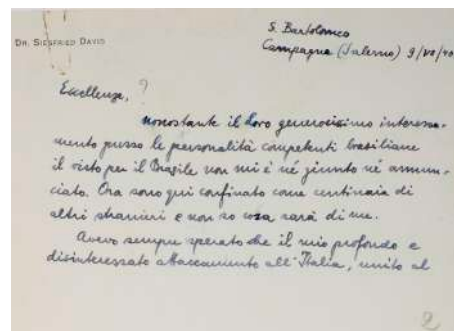 DR. SIEGFRIED DAVID
S. Bartolomeo
Campagna (Salerno) 9/VII/40
Eccellenza, ?
nonostante il Loro generosissimo interessa-
mento presso le personalità competenti brasiliane
il visto per il Brasile non mi è né giunto né annun-
ciato. Ora sono qui confinato come centinaia di
altri stranieri e non so cosa sarà di me.
Avevo sempre sperato che il mio profondo e
disinteressato attaccamento all'Italia, unito al
2